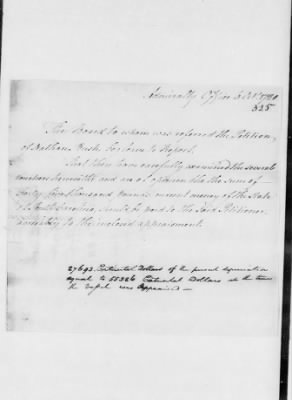 Admiralty Office 6 Octr 1780
325
The Board to whom was referred the Petition
of Nathan Bush beg leave to Report.
That they have carefully examined the several
vouchers herewith and are of opinion that the sum of
Forty five thousand Pounds current money of the State
of South Carolina, should be paid to the said Petitioner
agreeably to the inclosed appraisement.
27693 Continental Dollars of the present depreciation
equal to 55386 Continental Dollars at the time
the Vessel was Appraised —